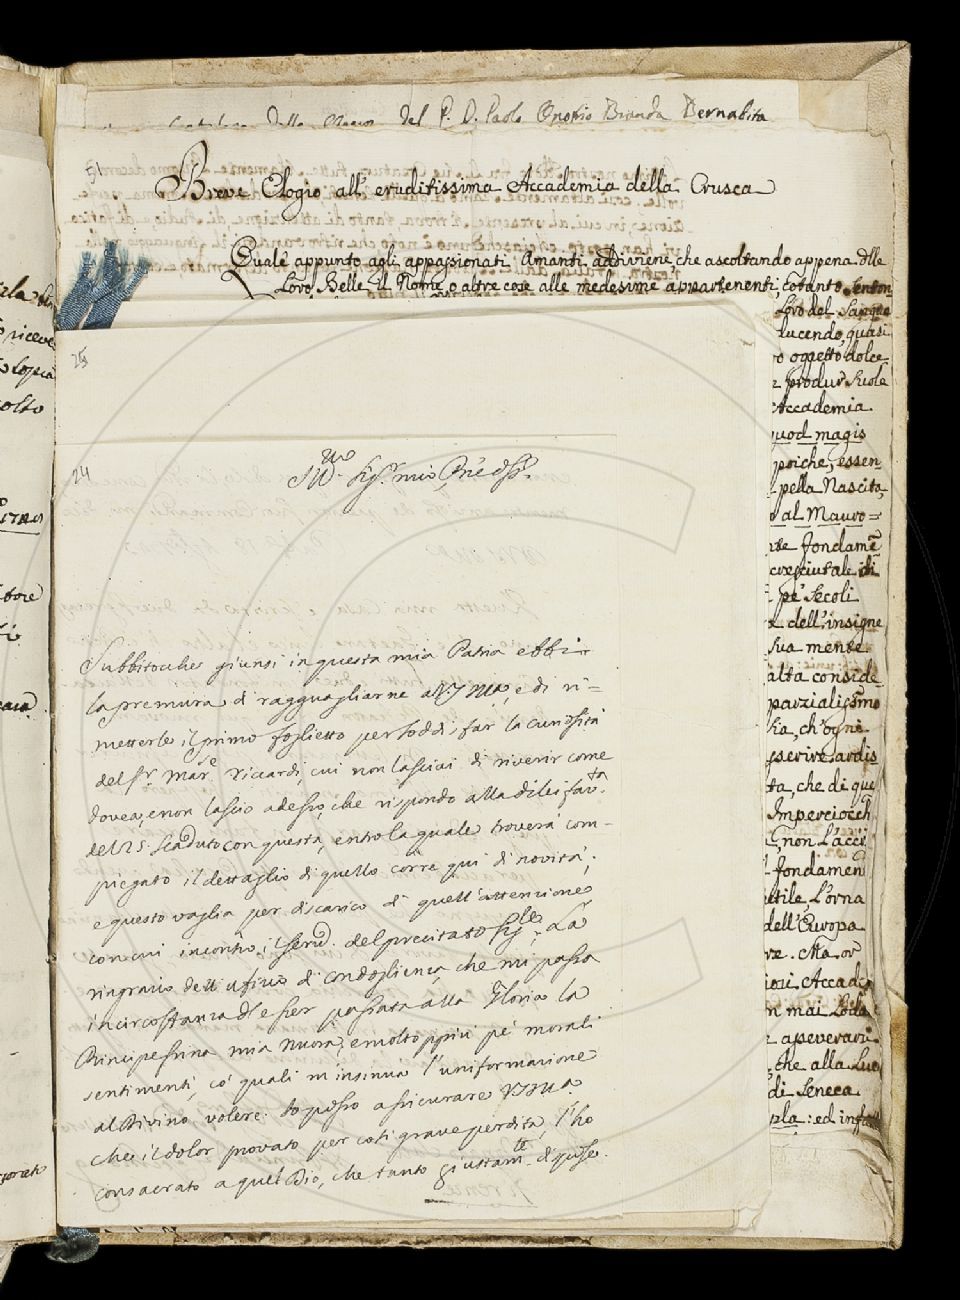 del P. D. Paolo Onofrio Branda Bernabita
51
Breve Elogio all' eruditissima Accademia della Crusca
Quale appunto agli appassionati Amanti addiviene che ascoltando appena dlle
Loro Belle il Nome, o altre cose alle medesime appartenenti, cotanto senton
Loro del Sangue
lucendo, quasi
ro oggetto dolce
produr suole
Accademia
quod magis
poiche, essen
pella Nascita
o al Mauro=
te fondamē
cresciutale di
pe' Secoli
a dell'insigne
sua mente
alta conside
parzialissmo
sia, ch'ogni
serivere ardis
ta, che di que
Imperciocch
non l'acci
fondamen
utile, l'orna
dell'Europa
re. Ma or
iori Accade
n mai Loda
apeverari
che alla Luo
di Seneca
pla: ed infatt
25
24
Illmo. Sigr. mio Prōe Ossmo.
Subbitoche giunsi in questa mia Patria ebbi
la premura di ragguagliarne a VS Illma, e di ri=
metterle il primo foglietto per soddisfar la curiosità
del Sr. Marse. Riccardi, cui non lasciai di riverir come
dovea, e non lascio adesso, che rispondo alla di lei favta.
del 25. Scaduto con questa, entro la quale troverà com-
piegato il dettaglio di quello corre qui di novità;
e questo vaglia per discarico di quell'attenzione,
con cui incontro il servo. del precitato Sigre. La
ringrazio dell'ufizio di condoglienza, che mi passa
in circostanza d'esser passata alla Gloria la
Principessina mia Nuora, e molto più pe' morali
sentimenti, co' quali m'insinua l'uniformazione
al Divino volere. Io posso assicurare VS Illma.
che il dolor provato per così grave perdita, l'ho
consacrato a quel Dio, che tanto giustamte. dispose.